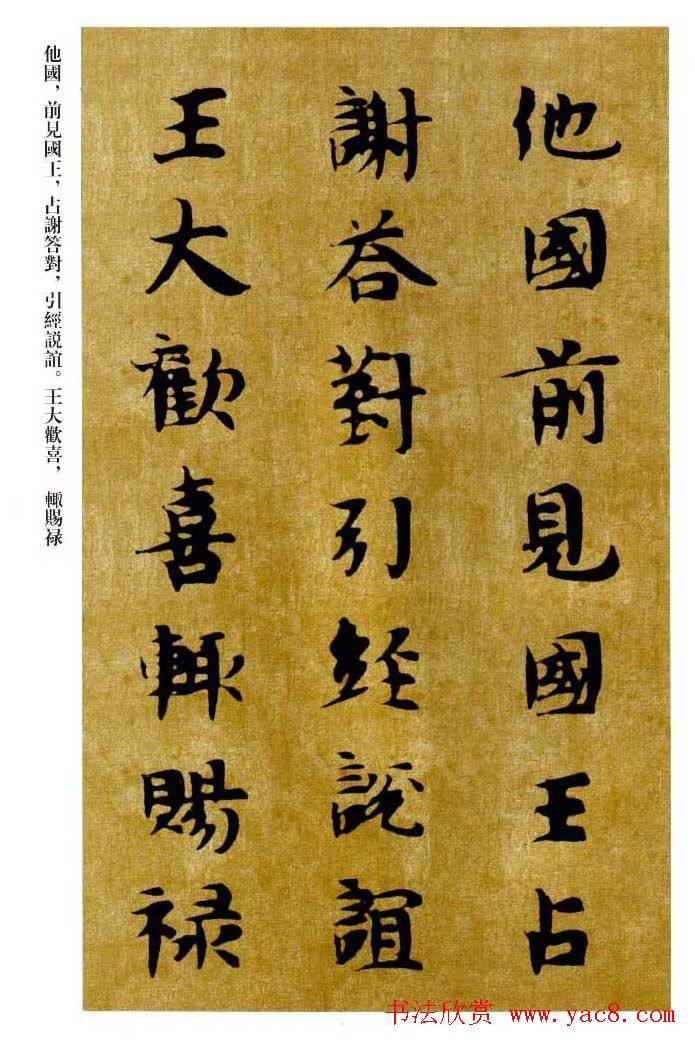 他國前見國王占
謝荅對引經説誼
王大歡喜輙賜禄
他國，前見國王，占謝答對，引經説誼。王大歡喜，輙賜禄
书法欣赏 www.yac8.com